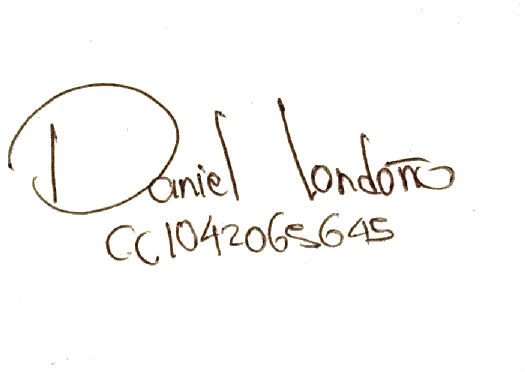 Daniel Londoño
CC1042065645